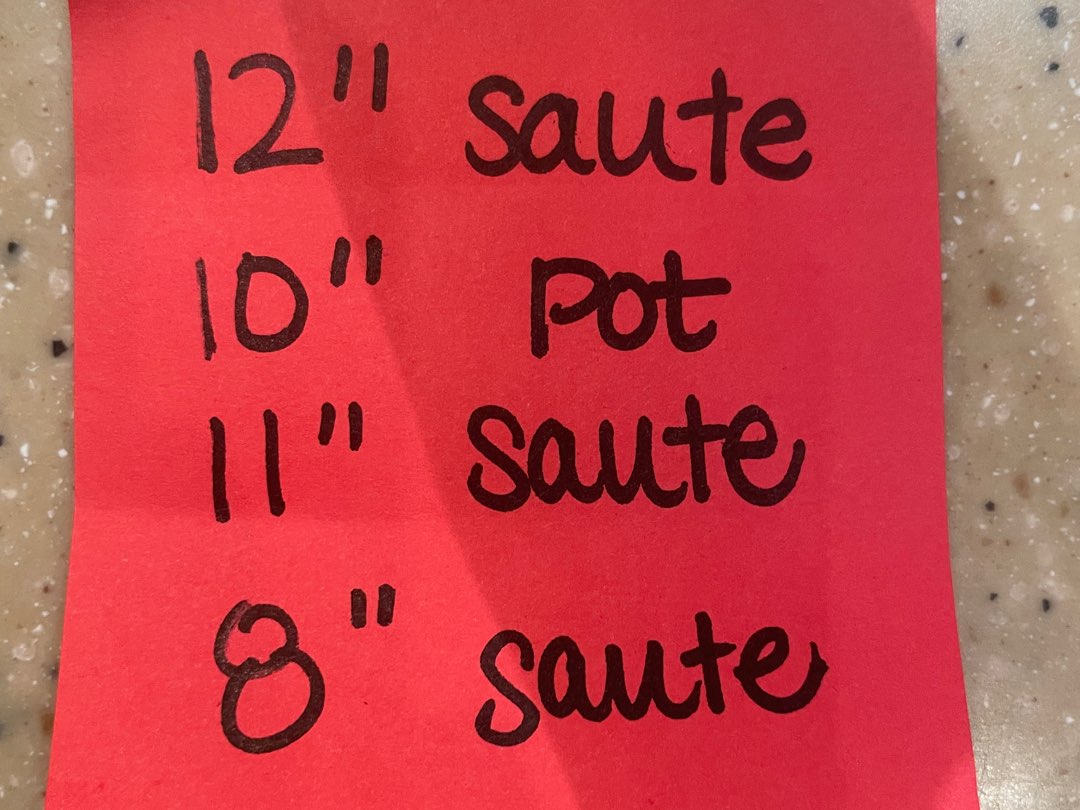 12" saute
10" pot
11" saute
8" saute